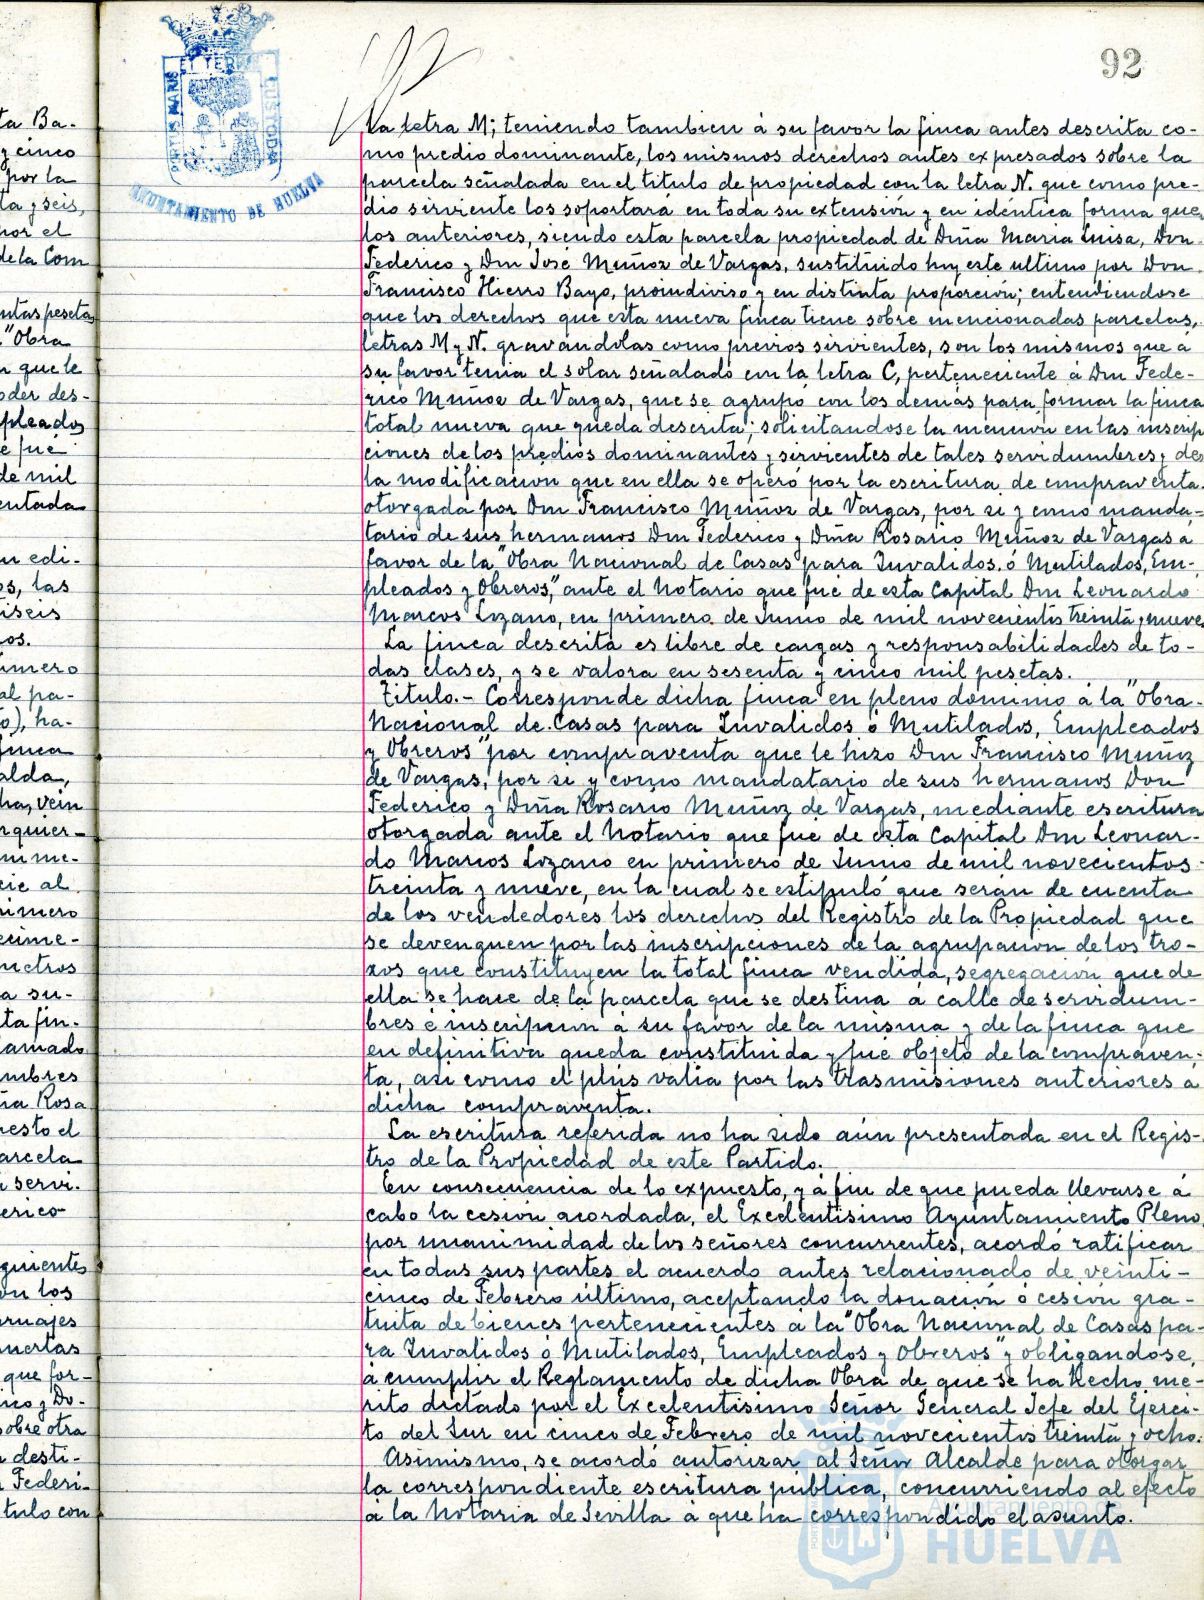 92
la letra M; teniendo tambien á su favor la finca antes descrita co-
mo predio dominante, los mismos derechos antes expresados sobre la
parcela señalada en el titulo de propiedad con la letra N. que como pre-
dio sirviente los soportará en toda su extensión y en idéntica forma que
los anteriores, siendo esta parcela propiedad de Dña Maria Luisa, Don
Federico y Don José Muñoz de Vargas, sustituido hoy este ultimo por Don
Francisco Hierro Bayo, proindiviso y en distinta proporción; entendiendose
que los derechos que esta nueva finca tiene sobre mencionadas parcelas,
letras M y N. gravándolas como previos sirvientes, son los mismos que á
su favor tenia el solar señalado con la letra C, perteneciente á Don Fede-
rico Muñoz de Vargas, que se agrupó con los demás para formar la finca
total nueva que queda descrita; solicitandose la mención en las inscrip
ciones de los predios dominantes y sirvientes de tales servidumbres y de
la modificacion que en ella se operó por la escritura de compraventa
otorgada por Don Francisco Muñoz de Vargas, por si y como manda-
tario de sus hermanos Don Federico y Dña Rosario Muñoz de Vargas a
favor de la "Obra Nacional de Casas para Invalidos ó Mutilados, Em-
pleados y Obreros", ante el Notario que fué de esta Capital Don Leonardo
Marcos Lozano, en primero de Junio de mil novecientos treinta y nueve,
La finca descrita es libre de cargas y responsabilidades de to-
das clases, y se valora en sesenta y cinco mil pesetas.
Titulo.- Corresponde dicha finca en pleno dominio á la "Obra
Nacional de Casas para Invalidos ó Mutilados, Empleados
y Obreros" por compraventa que le hizo Don Francisco Muñoz
de Vargas, por si y como mandatario de sus hermanos Don
Federico y Dña Rosario Muñoz de Vargas, mediante escritura
otorgada ante el Notario que fué de esta Capital Don Leonar-
do Marcos Lozano en primero de Junio de mil novecientos
treinta y nueve, en la cual se estipuló que serán de cuenta
de los vendedores los derechos del Registro de la Propiedad que
se devenguen por las inscripciones de la agrupacion de los tro-
zos que constituyen la total finca vendida, segregación que de
ella se hace de la parcela que se destina á calle de servidum-
bres é inscripcion á su favor de la misma y de la finca que
en definitiva queda constituida y fué objeto de la compraven-
ta, asi como el plus valia por las trasmisiones anteriores á
dicha compraventa.
La escritura referida no ha sido aún presentada en el Regis-
tro de la Propiedad de este Partido.
En consecuencia de lo expuesto, y á fin de que pueda llevarse á
cabo la cesión acordada, el Excelentisimo Ayuntamiento Pleno,
por unanimidad de los señores concurrentes, acordó ratificar
en todas sus partes el acuerdo antes relacionado de veinti-
cinco de Febrero último, aceptando la donación ó cesión gra-
tuita de bienes pertenecientes a la "Obra Nacional de Casas pa-
ra Invalidos ó Mutilados, Empleados y Obreros" y obligandose,
a cumplir el Reglamento de dicha Obra de que se ha hecho mé-
rito dictado por el Excelentisimo Señor General Jefe del Ejerci-
to del Sur en cinco de Febrero de mil novecientos treinta y ocho.
Asimismo, se acordó autorizar al Señor Alcalde para otorgar
la correspondiente escritura pública, concurriendo al efecto
á la Notaria de Sevilla á que ha correspondido el asunto.
PORTUS MARIS ET TERRE CUSTODIA
AYUNTAMIENTO DE HUELVA
Ayuntamiento de
HUELVA
ta Ba-
y cinco
por la
ta y seis,
por el
de la Com
ntas pesetas
"Obra
n que le
oder des-
pleados
e fué
de mil
entada
n edi-
os, las
iseis
os.
úmero
al pa-
o), ha-
finca
alda,
ha, vein
quier-
n me-
cie al
rimero
ecime-
metros
a su-
ta fin-
lamado
mbres
ña Rosa
esto el
arcela
servi-
erico
guientes
on los
rruajes
uertas
que for-
ico y Do-
sobre otra
desti-
Federi-
tulo con